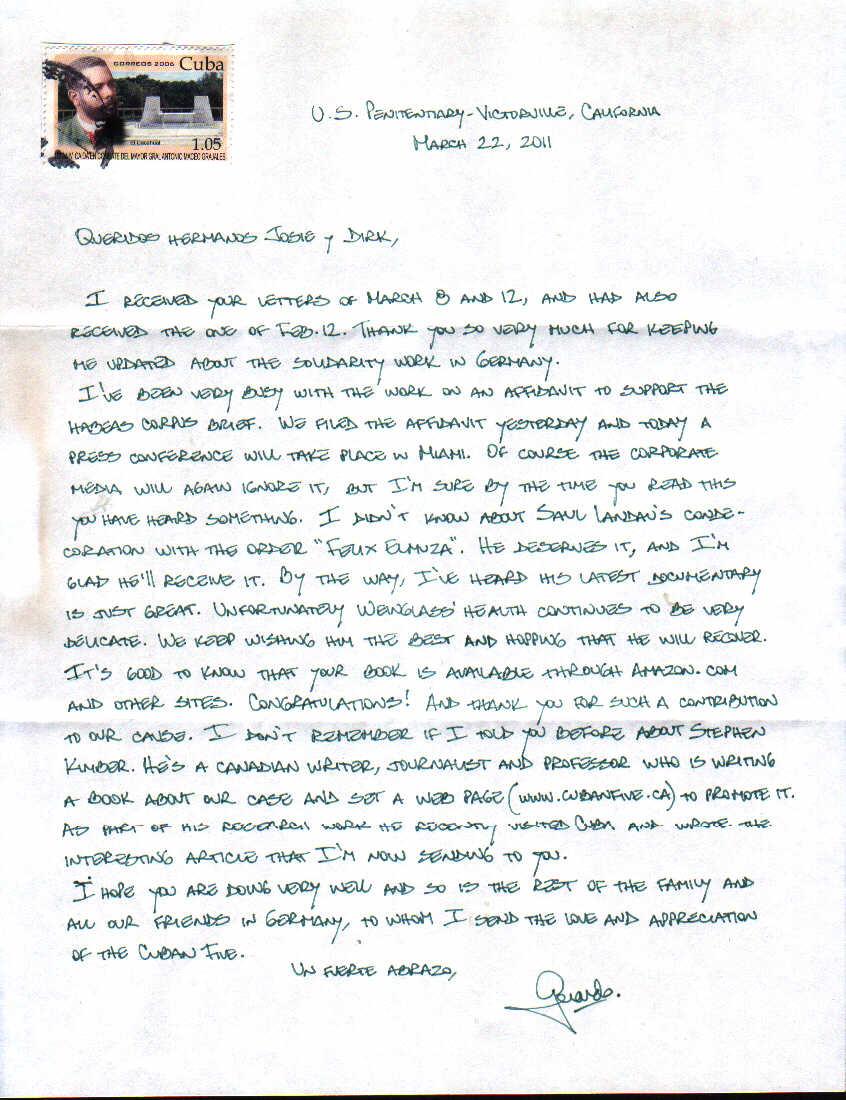 CORREOS 2006 Cuba
El Cacahual
1.05
CAIDA EN COMBATE DEL MAYOR GRAL. ANTONIO MACEO GRAJALES
U.S. PENITENTIARY-VICTORVILLE, CALIFORNIA
MARCH 22, 2011
QUERIDOS HERMANOS JOSIE y DIRK,
I RECEIVED YOUR LETTERS OF MARCH 8 AND 12, AND HAD ALSO
RECEIVED THE ONE OF FEB.12. THANK YOU SO VERY MUCH FOR KEEPING
ME UPDATED ABOUT THE SOLIDARITY WORK IN GERMANY.
I'VE BEEN VERY BUSY WITH THE WORK ON AN AFFIDAVIT TO SUPPORT THE
HABEAS CORPUS BRIEF. WE FILED THE AFFIDAVIT YESTERDAY AND TODAY A
PRESS CONFERENCE WILL TAKE PLACE IN MIAMI. OF COURSE THE CORPORATE
MEDIA WILL AGAIN IGNORE IT, BUT I'M SURE BY THE TIME YOU READ THIS
YOU HAVE HEARD SOMETHING. I DIDN'T KNOW ABOUT SAUL LANDAU'S CONDE-
CORATION WITH THE ORDER "FELIX ELMUZA". HE DESERVES IT, AND I'M
GLAD HE'LL RECEIVE IT. BY THE WAY, I'VE HEARD HIS LATEST DOCUMENTARY
IS JUST GREAT. UNFORTUNATELY WEINGLASS' HEALTH CONTINUES TO BE VERY
DELICATE. WE KEEP WISHING HIM THE BEST AND HOPPING THAT HE WILL RECOVER.
IT'S GOOD TO KNOW THAT YOUR BOOK IS AVAILABLE THROUGH AMAZON.COM
AND OTHER SITES. CONGRATULATIONS! AND THANK YOU FOR SUCH A CONTRIBUTION
TO OUR CAUSE. I DON'T REMEMBER IF I TOLD YOU BEFORE ABOUT STEPHEN
KIMBER. HE'S A CANADIAN WRITER, JOURNALIST AND PROFESSOR WHO IS WRITING
A BOOK ABOUT OUR CASE AND SET A WEB PAGE (WWW.CUBANFIVE.CA) TO PROMOTE IT.
AS PART OF HIS RESEARCH WORK HE RECENTLY VISITED CUBA AND WROTE THE
INTERESTING ARTICLE THAT I'M NOW SENDING TO YOU.
I HOPE YOU ARE DOING VERY WELL AND SO IS THE REST OF THE FAMILY AND
ALL OUR FRIENDS IN GERMANY, TO WHOM I SEND THE LOVE AND APPRECIATION
OF THE CUBAN FIVE.
UN FUERTE ABRAZO,
Gerardo.